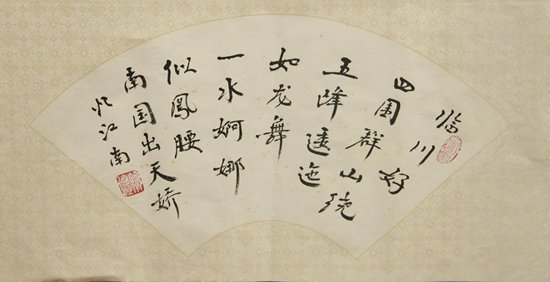 临川好
四围群山绕
五峰逶迤
如龙舞
一水婀娜
似鳳腰
南国出天娇
忆江南